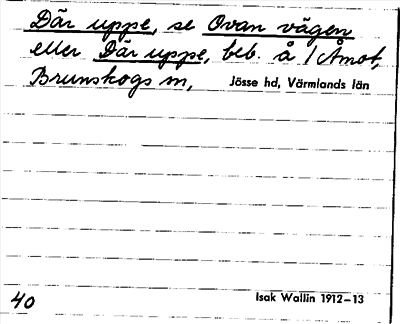 Där uppe, se Ovan vägen
eller Där uppe, beb. å 1 Åmot,
Brunskogs sn, Jösse hd, Värmlands län
40 Isak Wallin 1912–13